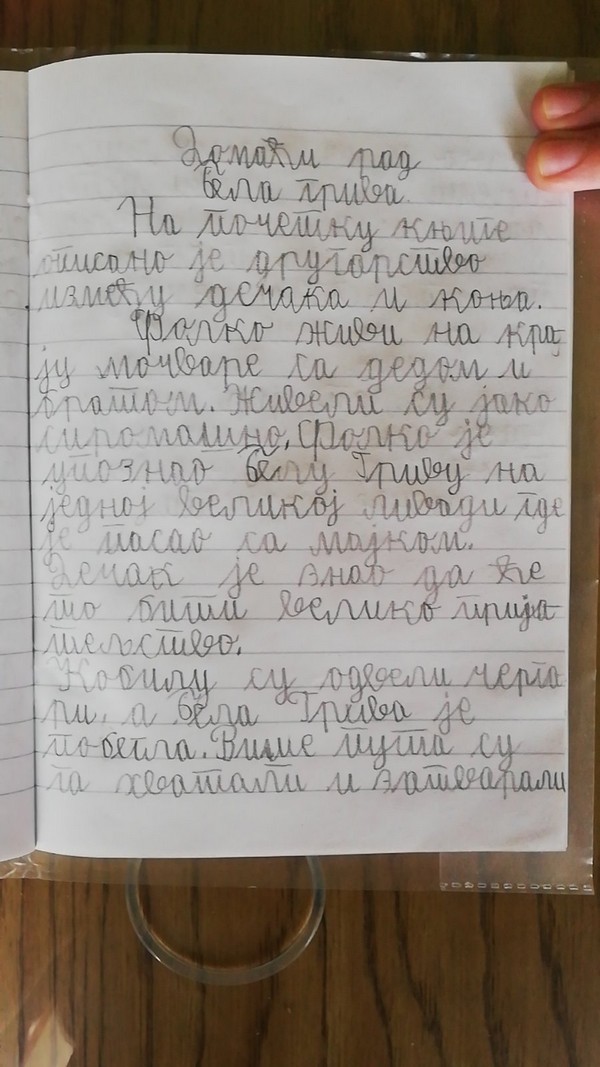 Домаћи рад
Бела грива
На почетку књиге
описано је другарство
између дечака и коња.
Фолко живи на кра
ју мочваре са дедом и
братом. Живели су јако
сиромашно. Фолко је
упознао Белу Гриву на
једној великој ливади где
је пасао са мајком.
Дечак је знао да ће
то бити велико прија
тељство.
Кобилу су одвели черга
ри, а Бела Грива је
побегла. Више пута су
га хватали и затварали